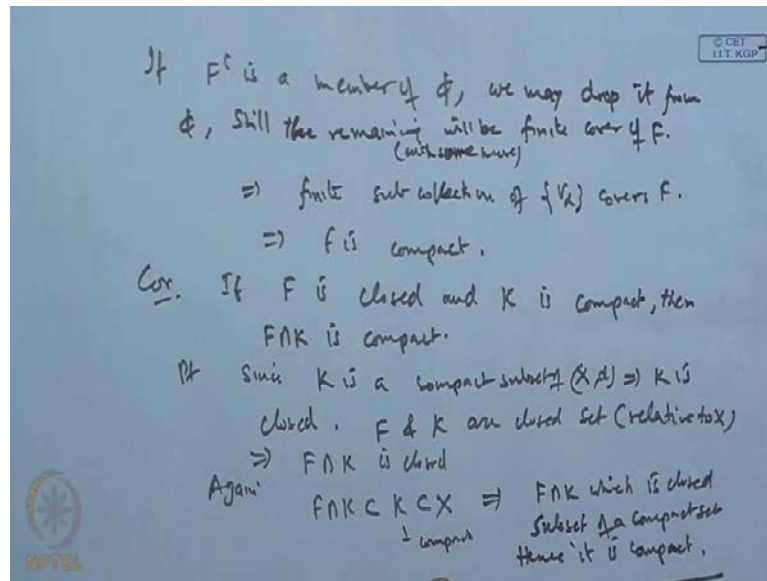 © CET
I.I.T. KGP
If F^c is a member of Φ, we may drop it from
Φ, Still the remaining will be finite cover of F.
(with some more)
⇒ finite sub collection of {Vα} covers F.
⇒ F is compact.
Cor. If F is closed and K is compact, then
F∩K is compact.
Pf Since K is a compact subset of (X,d) ⇒ K is
closed. F & K are closed set (relative to X)
⇒ F∩K is closed
Again F∩K ⊂ K ⊂ X ⇒ F∩K which is closed
compact
subset of a compact set
Hence it is compact.
NPTEL